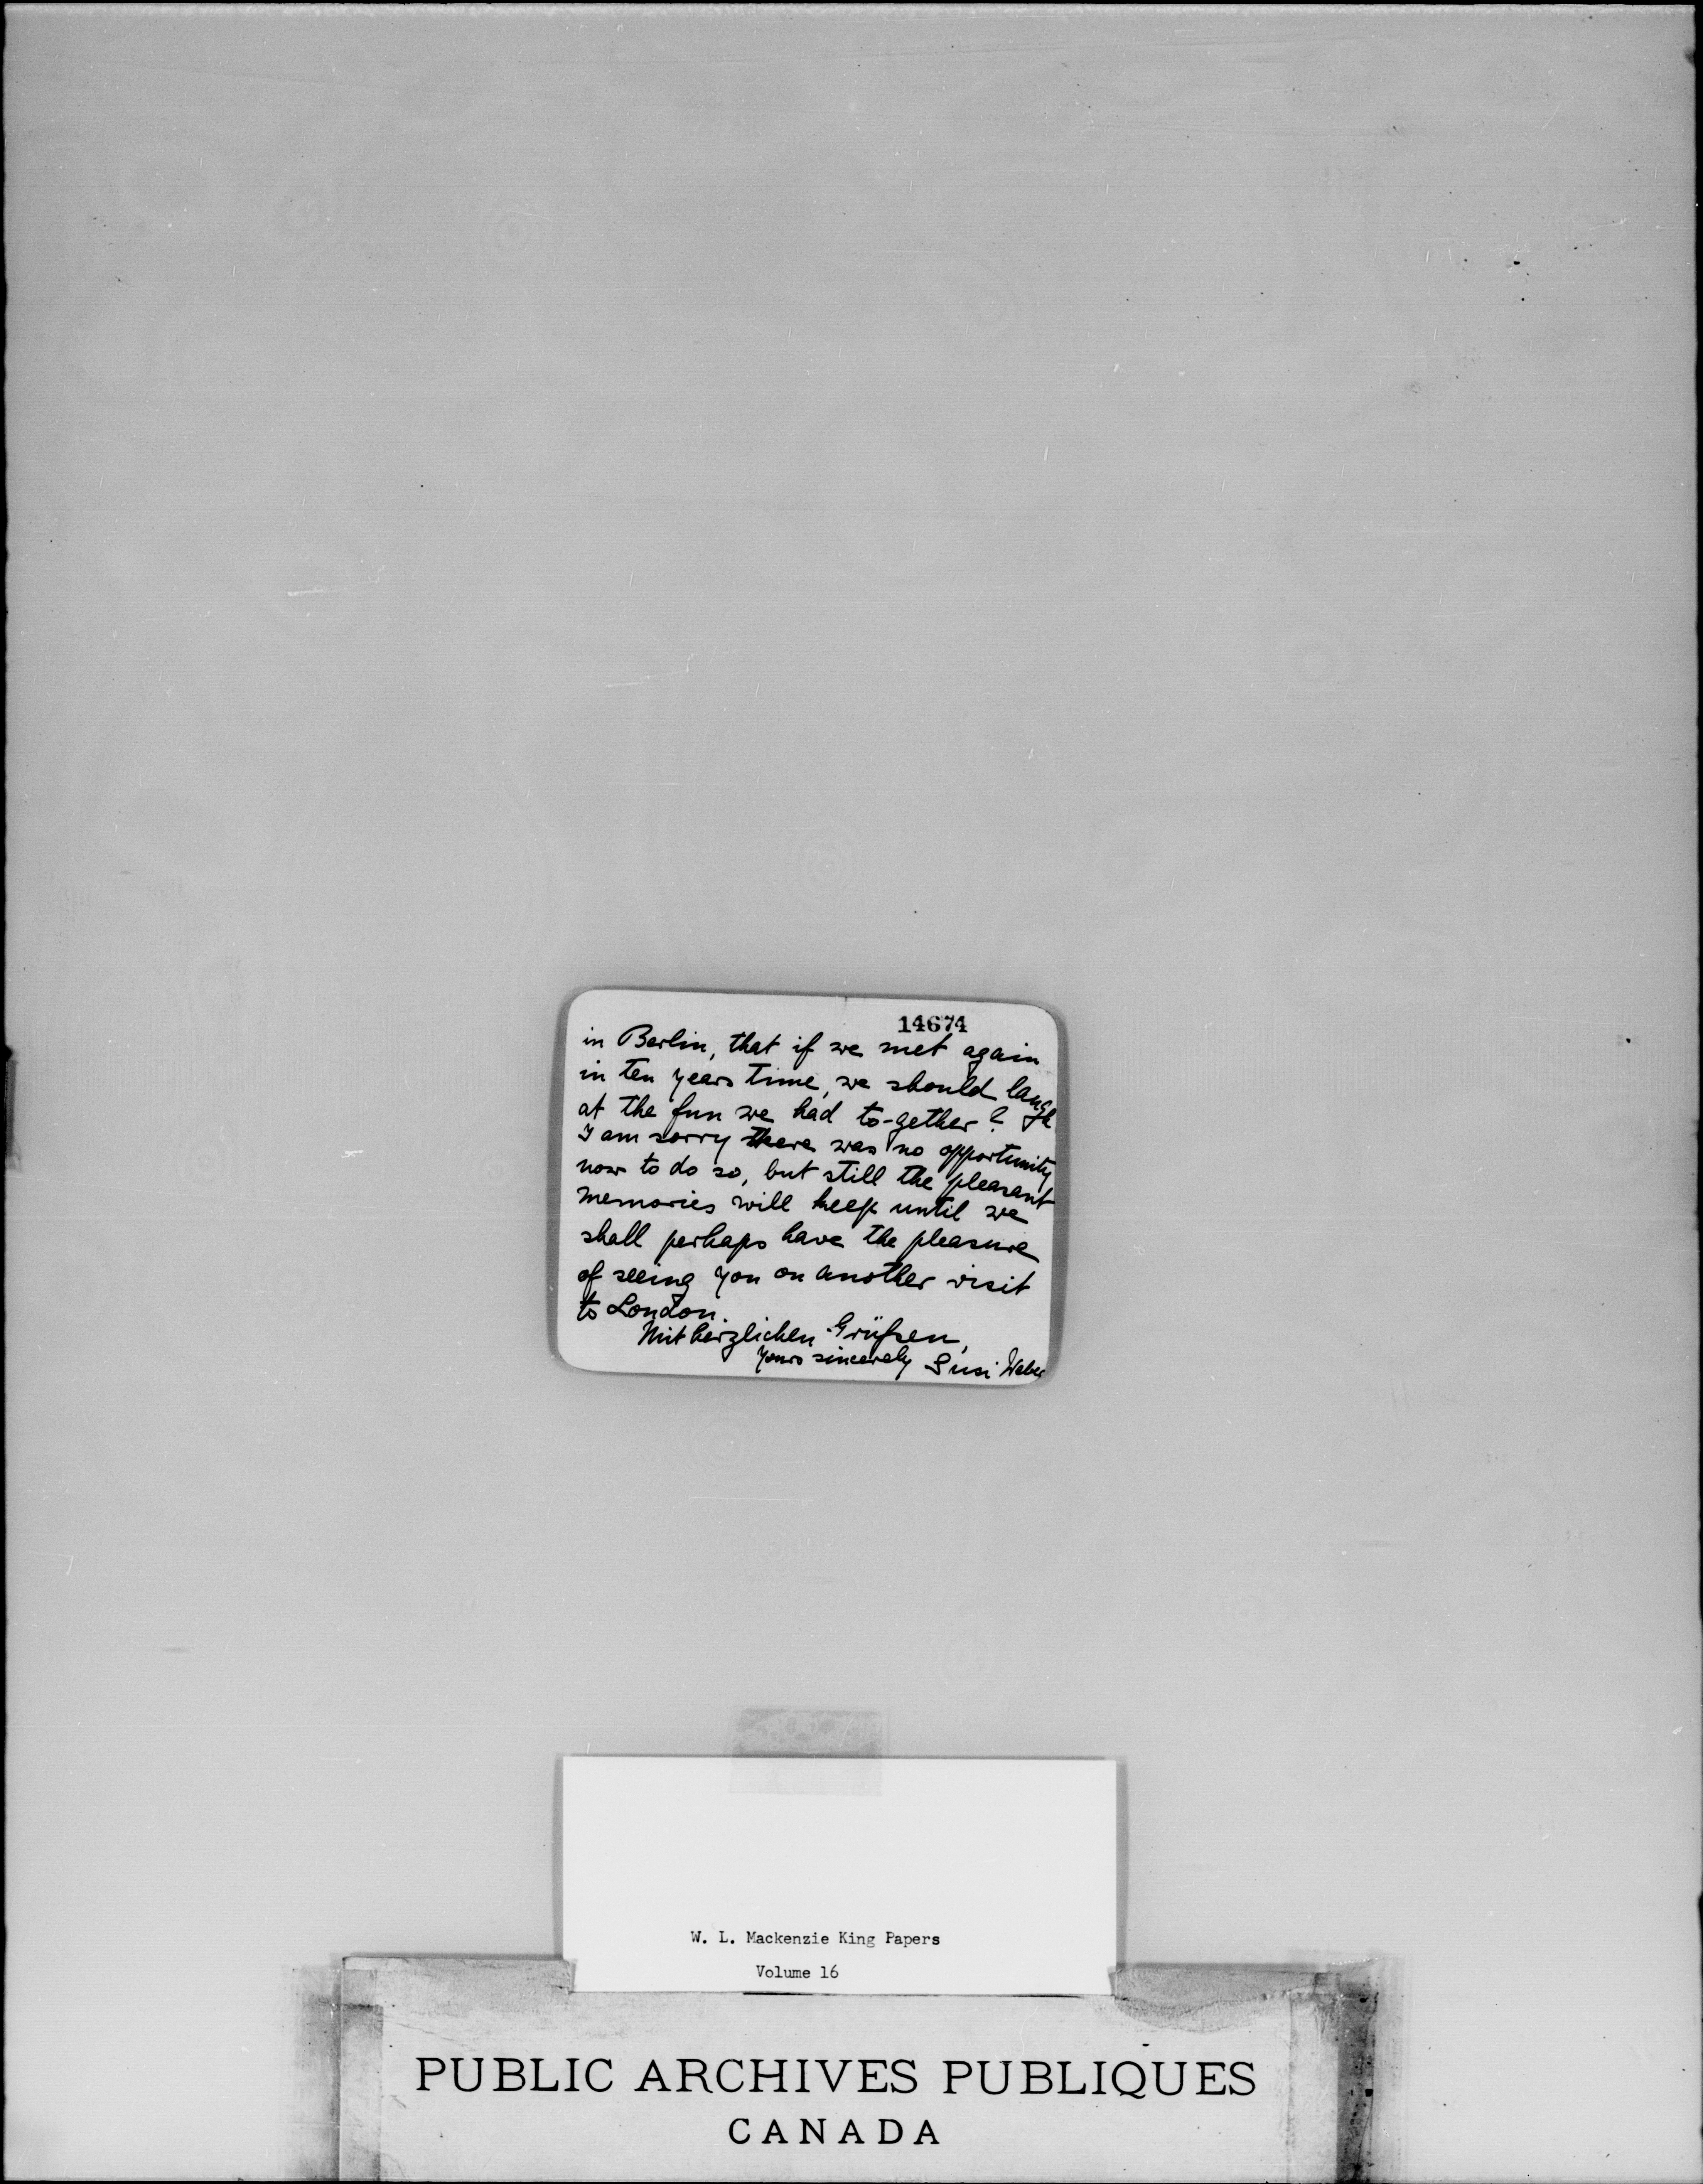 14674
in Berlin, that if we met again
in ten years time, we should laugh
at the fun we had to-gether?
I am sorry there was no opportunity
now to do so, but still the pleasant
memories will keep until we
shall perhaps have the pleasure
of seeing you on another visit
to London.
Mit herzlichen Grüßen,
Yours sincerely Susi Weber
W. L. Mackenzie King Papers
Volume 16
PUBLIC ARCHIVES PUBLIQUES
CANADA